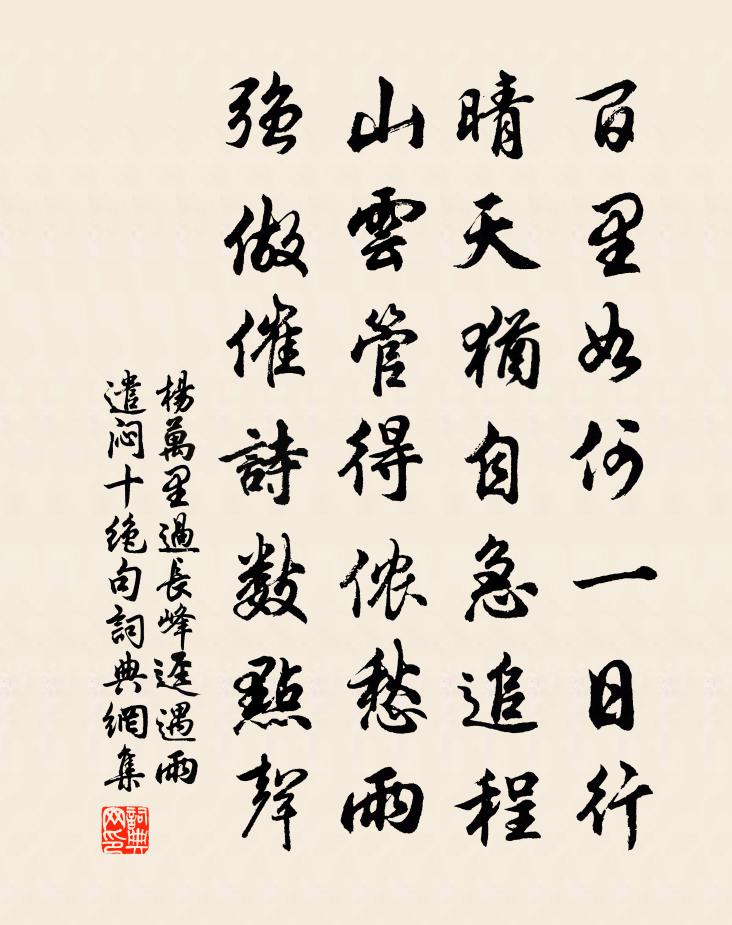 百里如何一日行
晴天猶自急追程
山雲管得儂愁雨
強做催詩數點聲
楊萬里過長峰逕遇雨
遣悶十絕句詞典網集
詞典網印